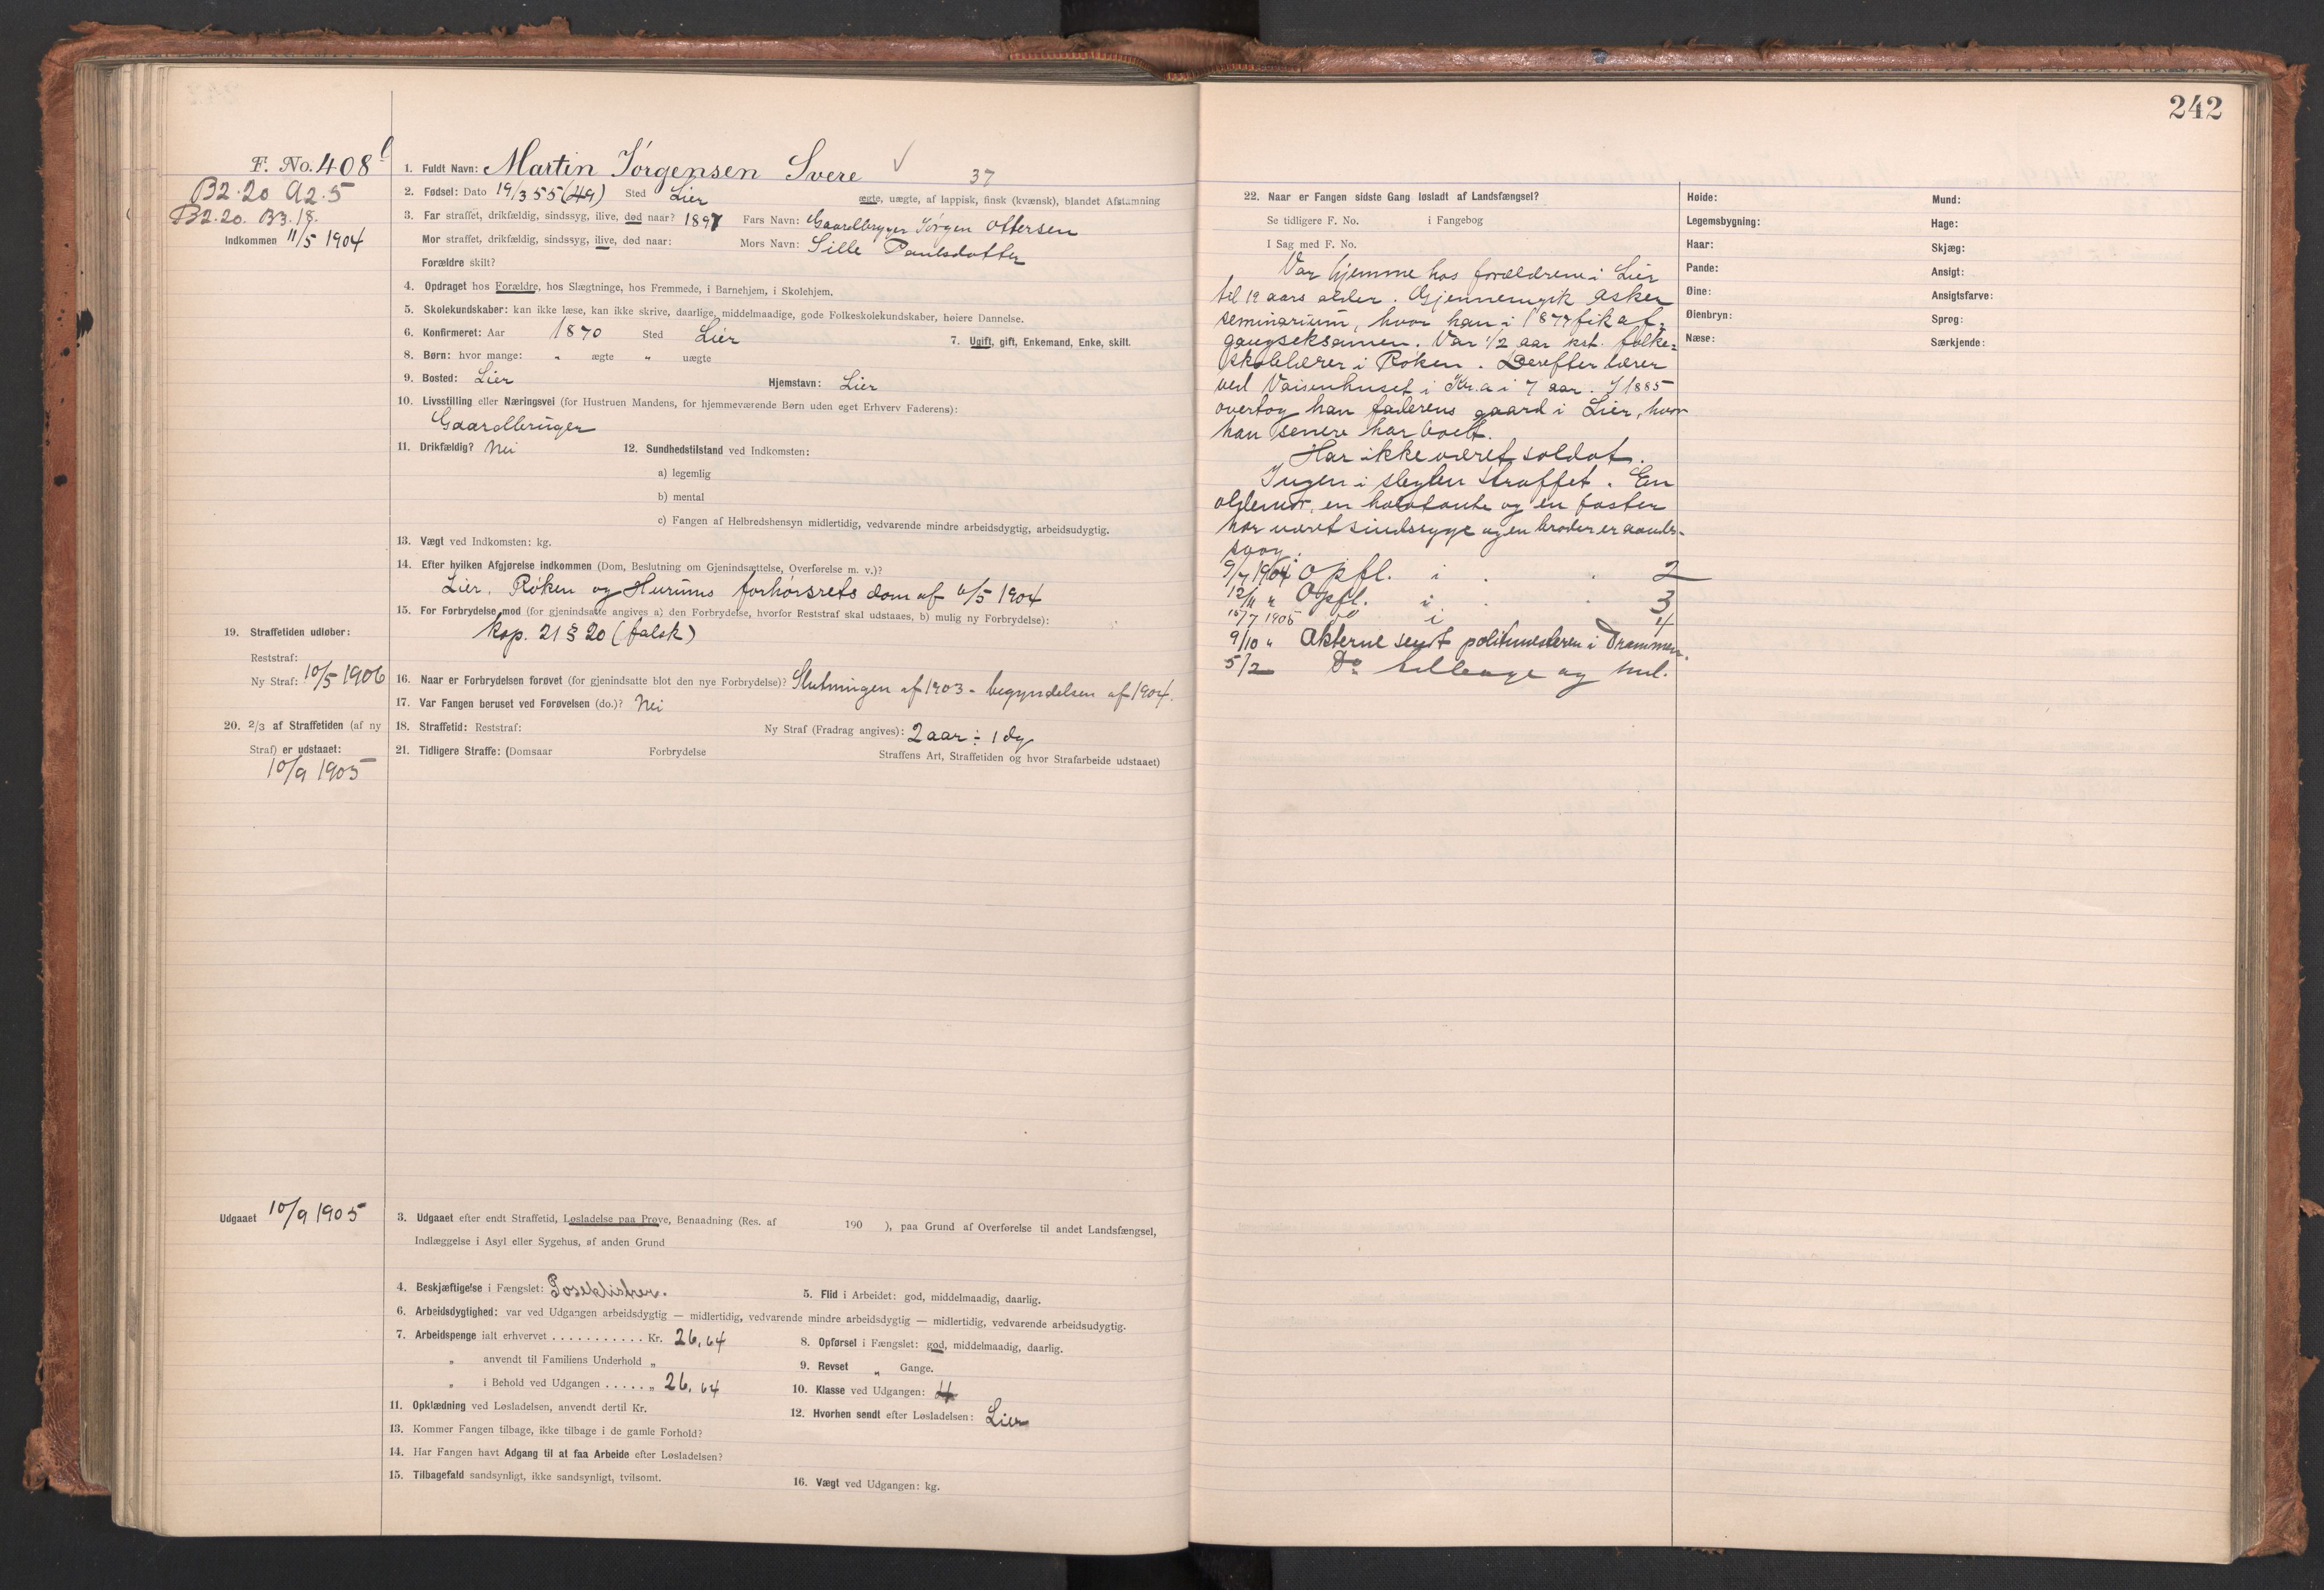 242
F. No. 408
B2.20 A2.5
B2.20. B3.18.
Indkommen 11/5 1904
1. Fuldt Navn: Martin Jörgensen Svere ✓
37
2. Fødsel: Dato 19/3 55 (49) Sted Lier ægte, uægte, af lappisk, finsk (kvænsk), blandet Afstamning
3. Far straffet, drikfældig, sindssyg, ilive, død naar? 1897 Fars Navn: Gaardbruger Jörgen Ottersen
Mor straffet, drikfældig, sindssyg, ilive, død naar: Mors Navn: Sille Paulsdatter
Forældre skilt?
4. Opdraget hos Forældre, hos Slægtninge, hos Fremmede, i Barnehjem, i Skolehjem.
5. Skolekundskaber: kan ikke læse, kan ikke skrive, daarlige, middelmaadige, gode Folkeskolekundskaber, høiere Dannelse.
6. Konfirmeret: Aar 1870 Sted Lier 7. Ugift, gift, Enkemand, Enke, skilt.
8. Børn: hvor mange: " ægte " uægte
9. Bosted: Lier Hjemstavn: Lier
10. Livsstilling eller Næringsvei (for Hustruen Mandens, for hjemmeværende Børn uden eget Erhverv Faderens):
Gaardbruger
11. Drikfældig? Nei 12. Sundhedstilstand ved Indkomsten:
a) legemlig
b) mental
c) Fangen af Helbredshensyn midlertidig, vedvarende mindre arbeidsdygtig, arbeidsudygtig.
13. Vægt ved Indkomsten: kg.
14. Efter hvilken Afgjørelse indkommen (Dom, Beslutning om Gjenindsættelse, Overførelse m. v.)?
Lier, Röken og Hurums forhörsrets dom af 6/5 1904
15. For Forbrydelse mod (for gjenindsatte angives a) den Forbrydelse, hvorfor Reststraf skal udstaaes, b) mulig ny Forbrydelse):
Kap. 21 § 20 (falsk)
19. Straffetiden udløber:
Reststraf:
Ny Straf: 10/5 1906
16. Naar er Forbrydelsen forøvet (for gjenindsatte blot den nye Forbrydelse)? Slutningen af 1903 - begyndelsen af 1904.
17. Var Fangen beruset ved Forøvelsen (do.)? Nei
20. 2/3 af Straffetiden (af ny
Straf) er udstaaet:
10/9 1905
18. Straffetid: Reststraf: Ny Straf (Fradrag angives): 2 aar ÷ 1 dg
21. Tidligere Straffe: (Domsaar Forbrydelse Straffens Art, Straffetiden og hvor Strafarbeide udstaaet)
Udgaaet 10/9 1905
3. Udgaaet efter endt Straffetid, Løsladelse paa Prøve, Benaadning (Res. af 190 ), paa Grund af Overførelse til andet Landsfængsel,
Indlæggelse i Asyl eller Sygehus, øf anden Grund
4. Beskjæftigelse i Fængslet: Poseklistrer. 5. Flid i Arbeidet: god, middelmaadig, daarlig.
6. Arbeidsdygtighed: var ved Udgangen arbeidsdygtig — midlertidig, vedvarende mindre arbeidsdygtig — midlertidig, vedvarende arbeidsudygtig.
7. Arbeidspenge ialt erhvervet . . . . . . . . . . . Kr. 26,64 8. Opførsel i Fængslet: god, middelmaadig, daarlig.
" anvendt til Familiens Underhold " 9. Revset " Gange.
" i Behold ved Udgangen . . . . . " 26,64 10. Klasse ved Udgangen: 4
11. Opklædning ved Løsladelsen, anvendt dertil Kr. 12. Hvorhen sendt efter Løsladelsen: Lier
13. Kommer Fangen tilbage, ikke tilbage i de gamle Forhold?
14. Har Fangen havt Adgang til at faa Arbeide efter Løsladelsen?
15. Tilbagefald sandsynligt, ikke sandsynligt, tvilsomt. 16. Vægt ved Udgangen: kg.
22. Naar er Fangen sidste Gang løsladt af Landsfængsel?
Se tidligere F. No. i Fangebog
I Sag med F. No.
Var hjemme hos forældrene i Lier
til 19 aars alder. Gjennemgik Asker
seminarium, hvor han i 1877 fik af-
gangseksamen. Var 1/2 aar kst. folke-
skolelærer i Röken. Derefter lærer
ved Vaisenhuset i Kr.a i 7 aar. I 1885
overtog han faderens gaard i Lier, hvor
han senere har boet.
Har ikke været soldat.
Ingen i slegten straffet. En
oldemor, en halvtante og en faster
har været sindssyge og en broder er aands-
svag.
9/7 1904 Opfl. i . . 2
12/11 " Opfl. i . . 3
15/7 1905 do i 4
9/10 " Akterne sendt politimesteren i Drammen.
5/2 Do tilbage og
Høide:
Legemsbygning:
Haar:
Pande:
Øine:
Øienbryn:
Næse:
Mund:
Hage:
Skjæg:
Ansigt:
Ansigtsfarve:
Sprog:
Særkjende: